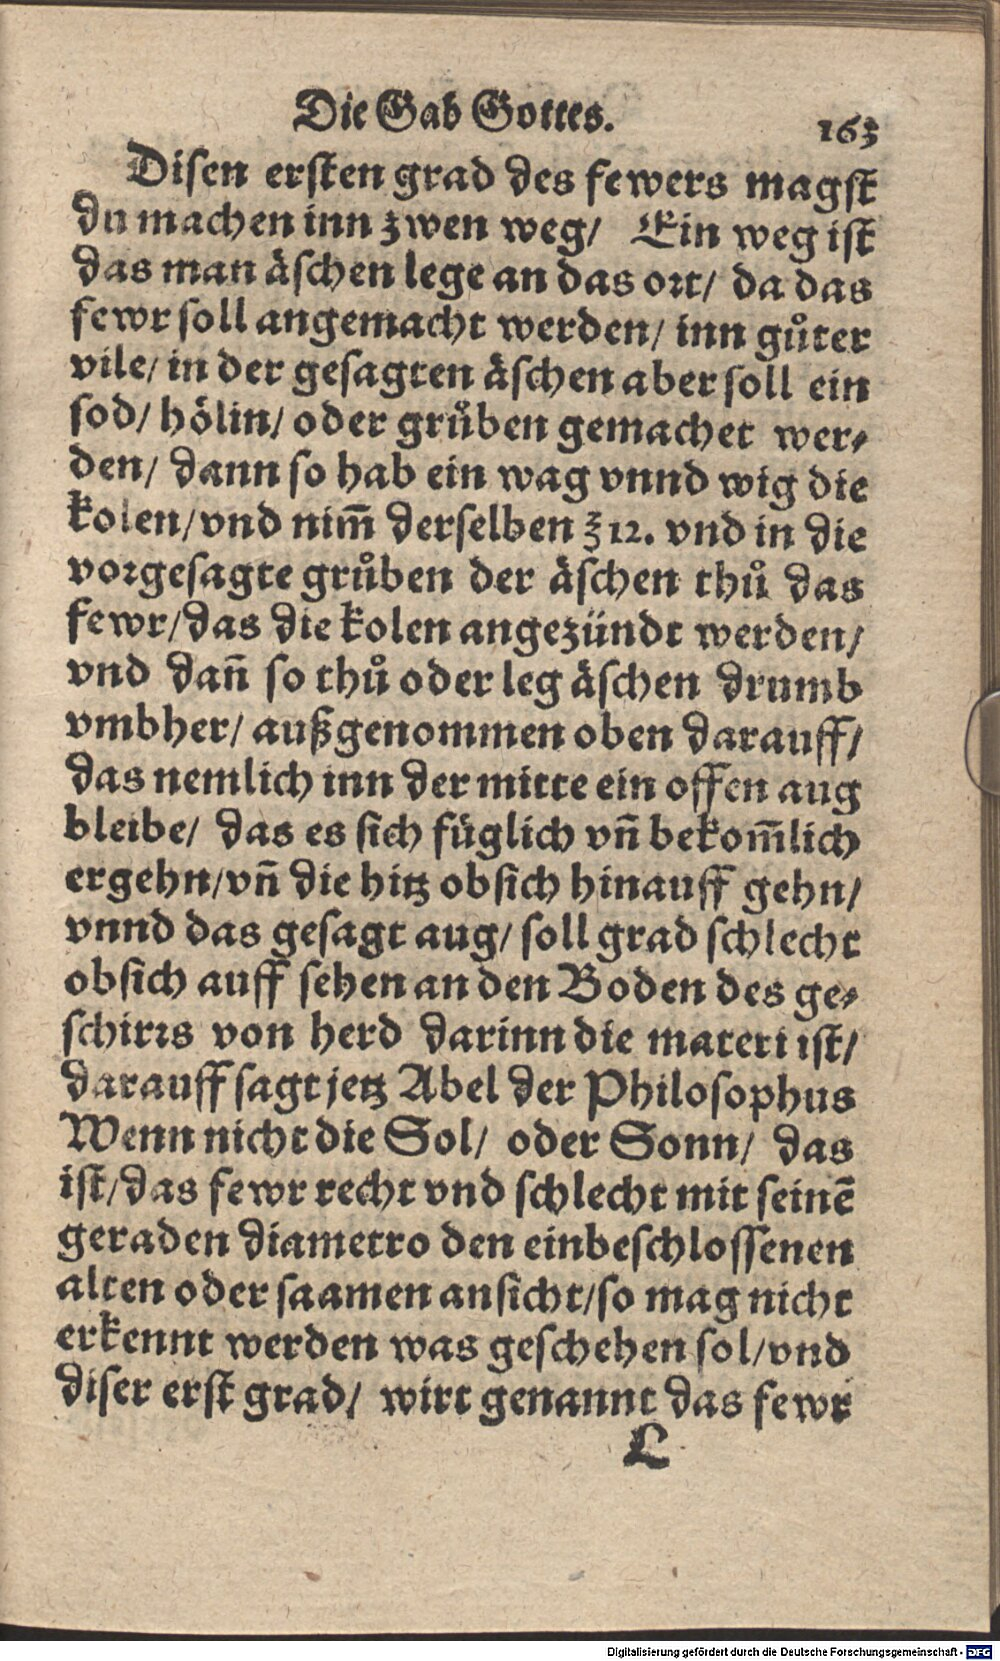 Die Gab Gottes. 163
Disen ersten grad des fewers magst
du machen inn zwen weg/ Ein weg ist
das man äschen lege an das ort/ da das
fewr soll angemacht werden/ inn gůter
vile/ in der gesagten äschen aber soll ein
sod/ hölin/ oder grůben gemachet wer⸗
den/ dann so hab ein wag vnnd wig die
kolen/ vnd nim̄ derselben ℥ 12. vnd in die
vorgesagte grůben der äschen thů das
fewr/ das die kolen angezündt werden/
vnd dañ so thů oder leg äschen drumb
vmbher/ außgenommen oben darauff/
das nemlich inn der mitte ein offen aug
bleibe/ das es sich füglich vñ bekom̄lich
ergehn/ vñ die hitz obsich hinauff gehn/
vnnd das gesagt aug/ soll grad schlecht
obsich auff sehen an den Boden des ge⸗
schirrs von herd darinn die materi ist/
darauff sagt jetz Abel der Philosophus
Wenn nicht die Sol/ oder Sonn/ das
ist/ das fewr recht vnd schlecht mit seinē
geraden diametro den einbeschlossenen
alten oder saamen ansicht/ so mag nicht
erkennt werden was geschehen sol/ vnd
diser erst grad/ wirt genannt das fewr
L
Digitalisierung gefördert durch die Deutsche Forschungsgemeinschaft - DFG